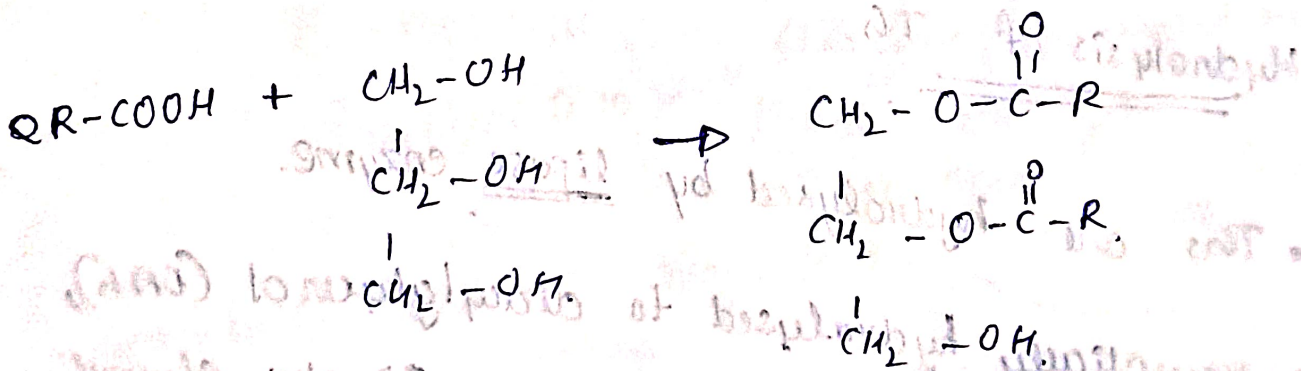 O
||
2R-COOH + CH₂-OH → CH₂-O-C-R
|
CH₂-OH
O
||
CH₂-O-C-R.
|
CH₂-OH.
|
CH₂-OH.